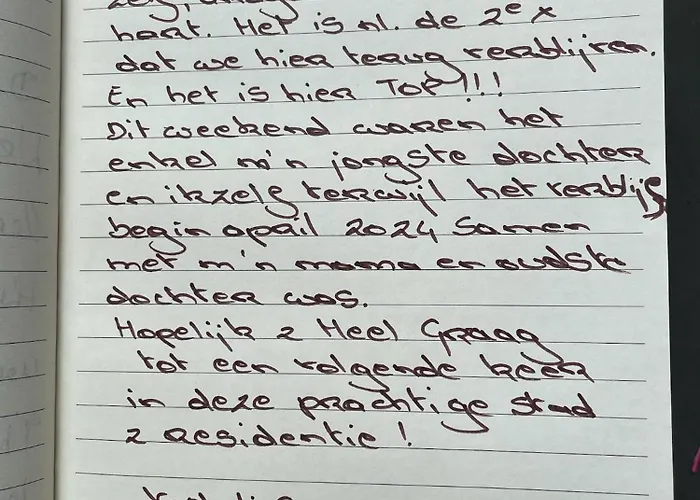 haar. Het is nl. de 2e x
dat we hier terug verblijven.
En het is hier TOP!!!
Dit weekend waren het
enkel m'n jongste dochter
en ikzelf terwijl het verblijf
begin april 2024 samen
met m'n mama en oudste
dochter was.
Hopelijk & Heel Graag
tot een volgende keer
in deze prachtige stad
& Residentie!